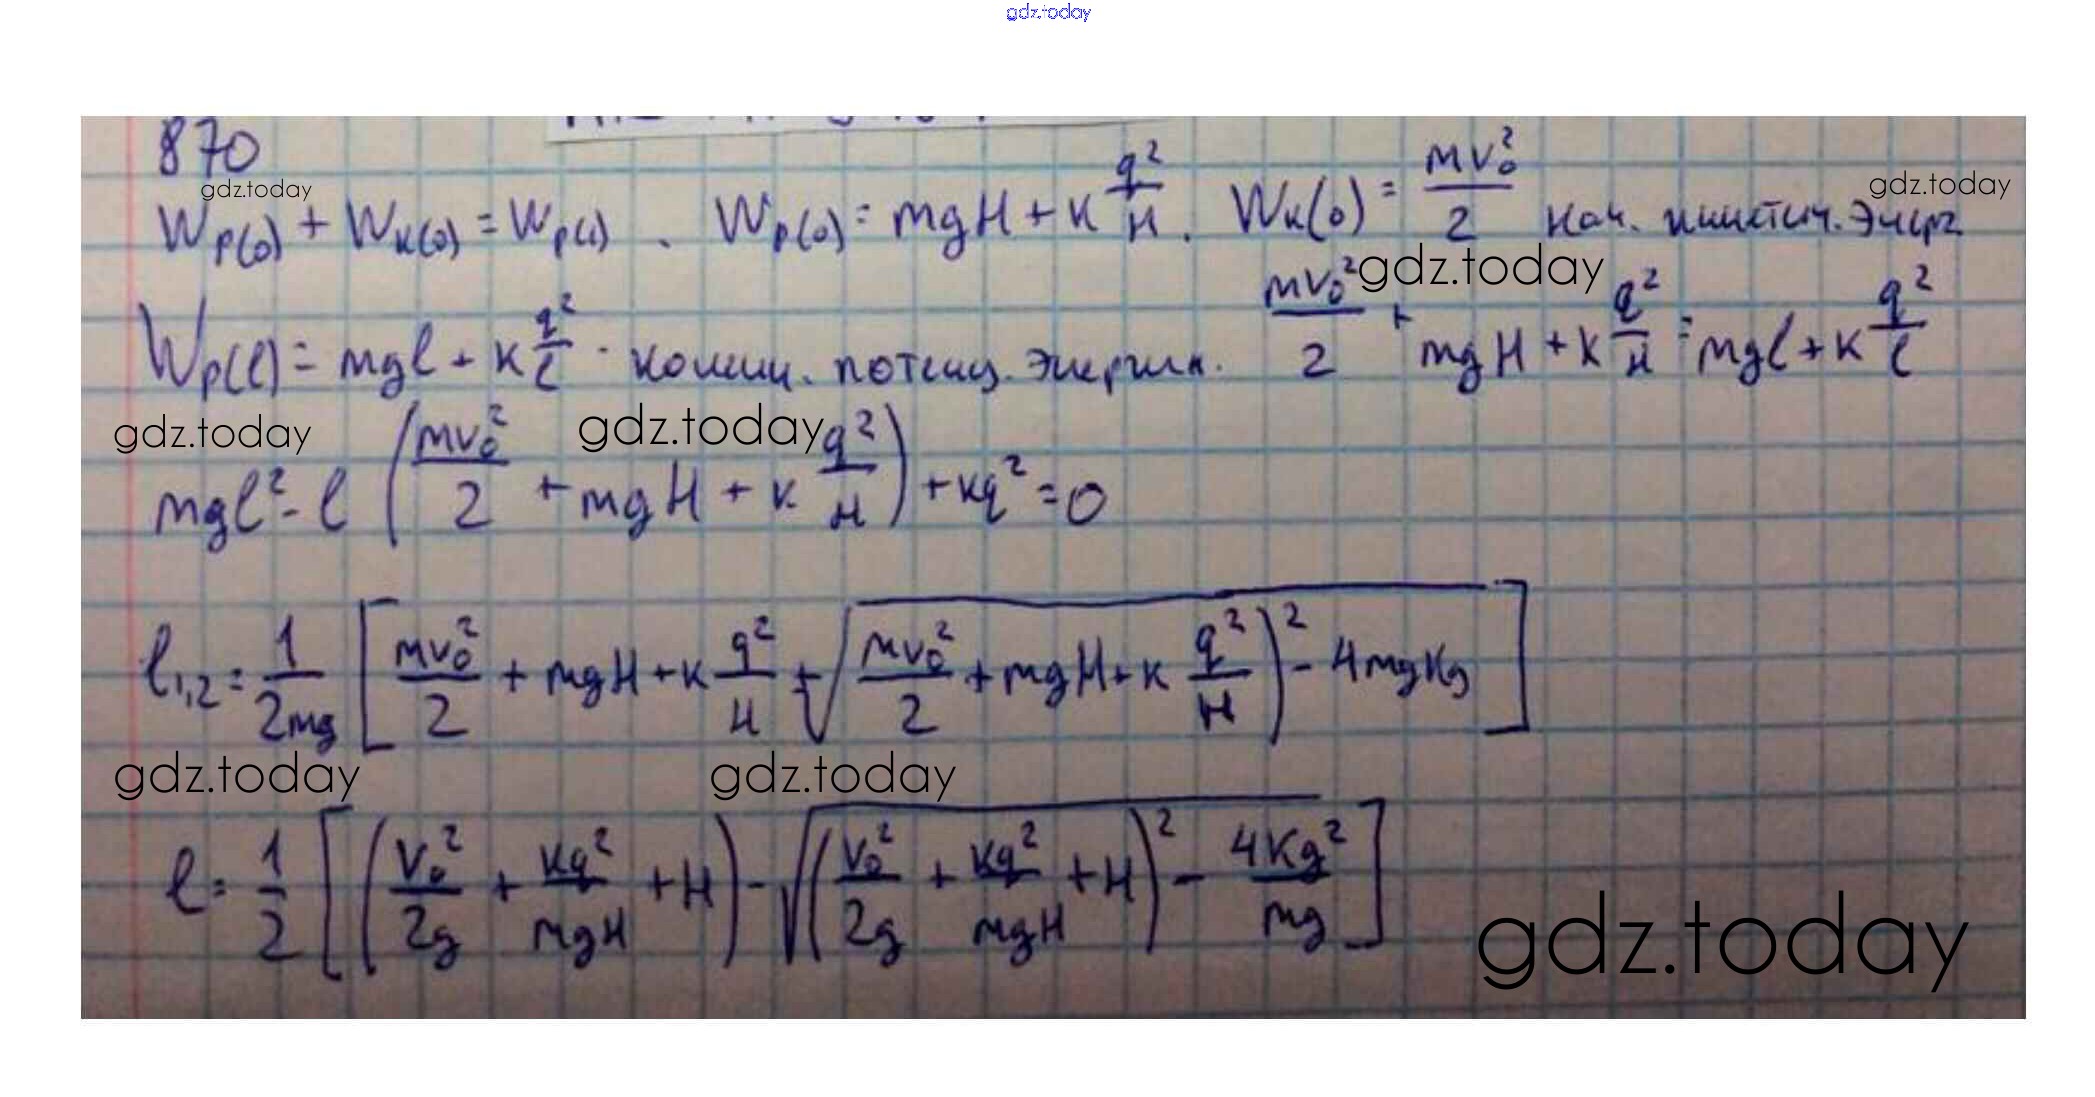 gdz.today
870
gdz.today
gdz.today
W_p(0) + W_к(0) = W_p(l) . W_p(0) = mgH + к q²/H . W_к(0) = mv₀²/2 нач. кинетич. энерг
gdz.today
W_p(l) = mgl + к q²/l · конеч. потенц. энергия. mv₀²/2 + mgH + к q²/H = mgl + к q²/l
gdz.today
gdz.today
mgl² - l (mv₀²/2 + mgH + к q²/H) + кq² = 0
l₁,₂ = 1/2mg [mv₀²/2 + mgH + к q²/H ± √(mv₀²/2 + mgH + к q²/H)² - 4mgкq]
gdz.today
gdz.today
l = 1/2 [(v₀²/2g + кq²/mgH + H) - √((v₀²/2g + кq²/mgH + H)² - 4кq²/mg]
gdz.today